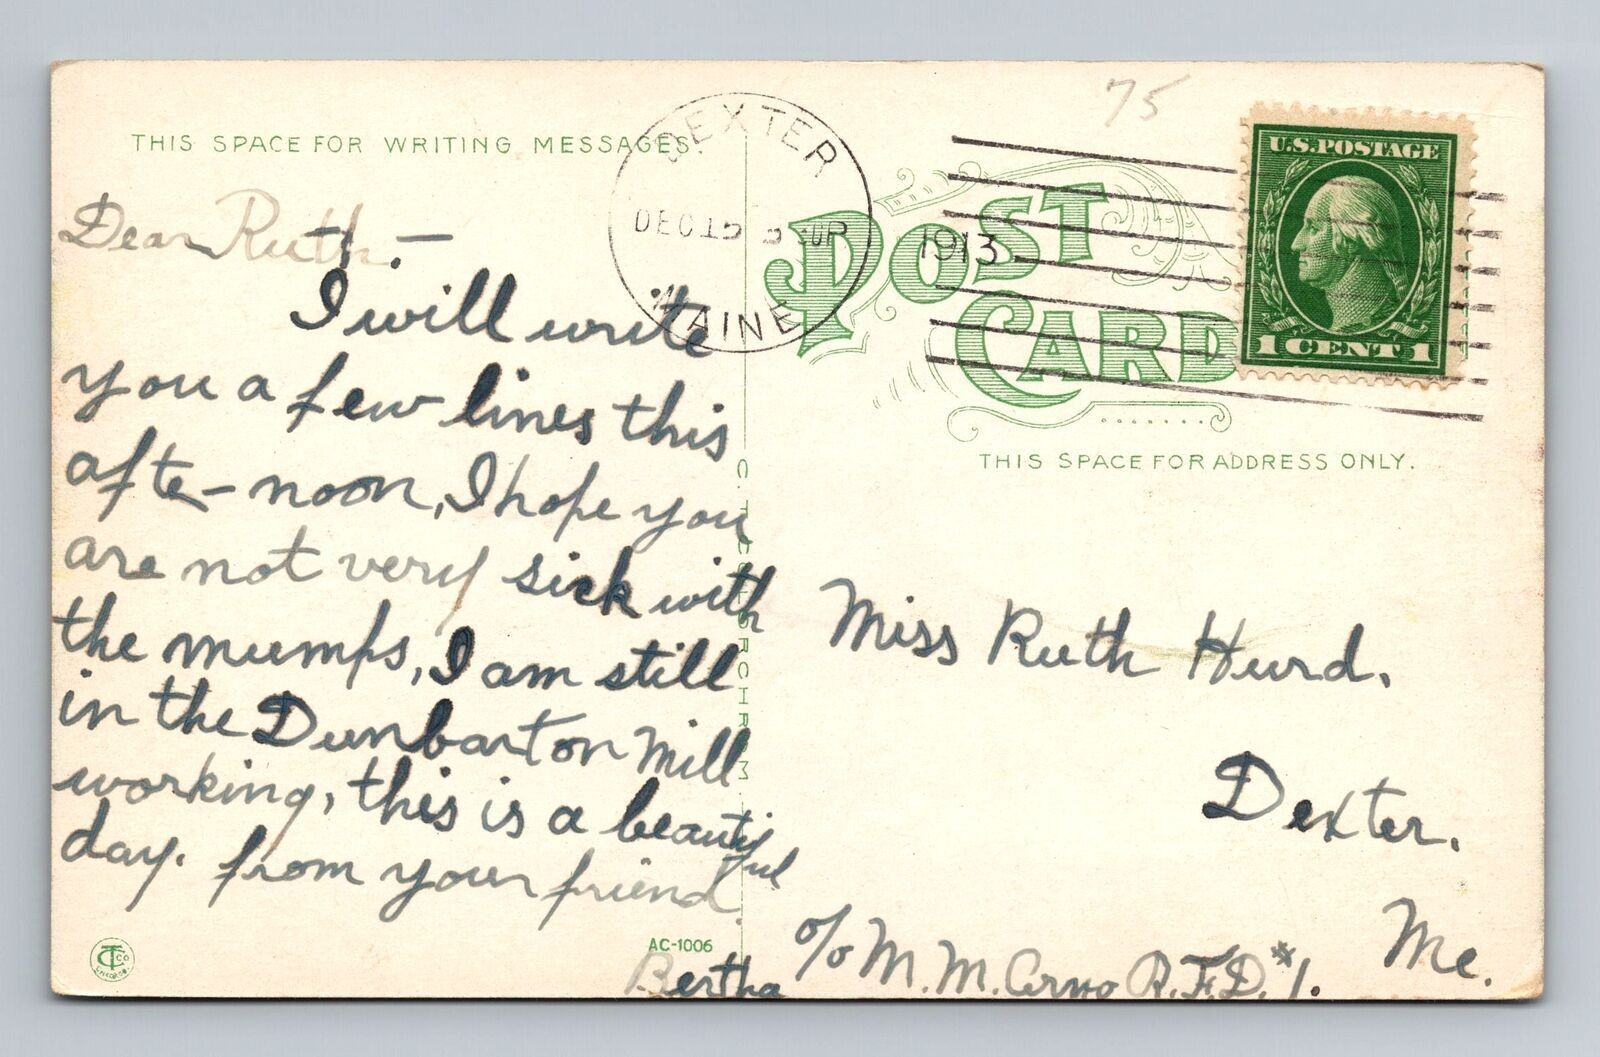 75
THIS SPACE FOR WRITING MESSAGES.
DEXTER
DEC 15
1913
MAINE
POST
CARD
U.S. POSTAGE
1 CENT 1
THIS SPACE FOR ADDRESS ONLY.
Dear Ruth.—
I will write
you a few lines this
afte-noon, I hope you
are not very sick with
the mumps, I am still
in the Dunbarton Mill
working, this is a beautiful
day. from your friend
Bertha
Miss Ruth Hurd.
Dexter.
Me.
c/o M. M. R.F.D. #1.
AC-1006
C. T. COLORCHROM
CT CO
CHICAGO